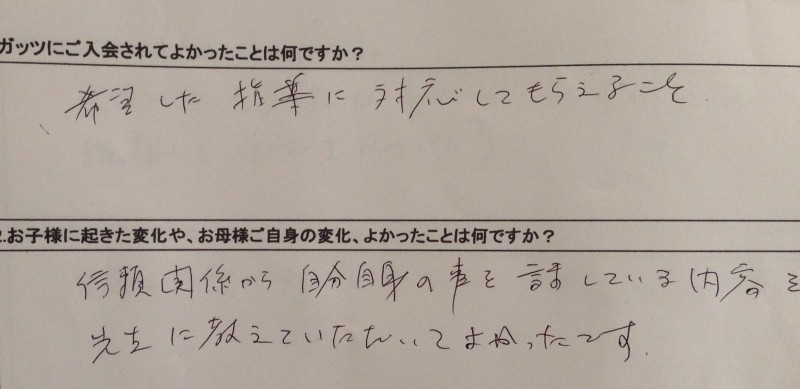 ガッツにご入会されてよかったことは何ですか？
希望した指導に対応してもらえること
2.お子様に起きた変化や、お母様ご自身の変化、よかったことは何ですか？
信頼関係から自分自身の事を話している内容を
先生に教えていただいてよかったです。